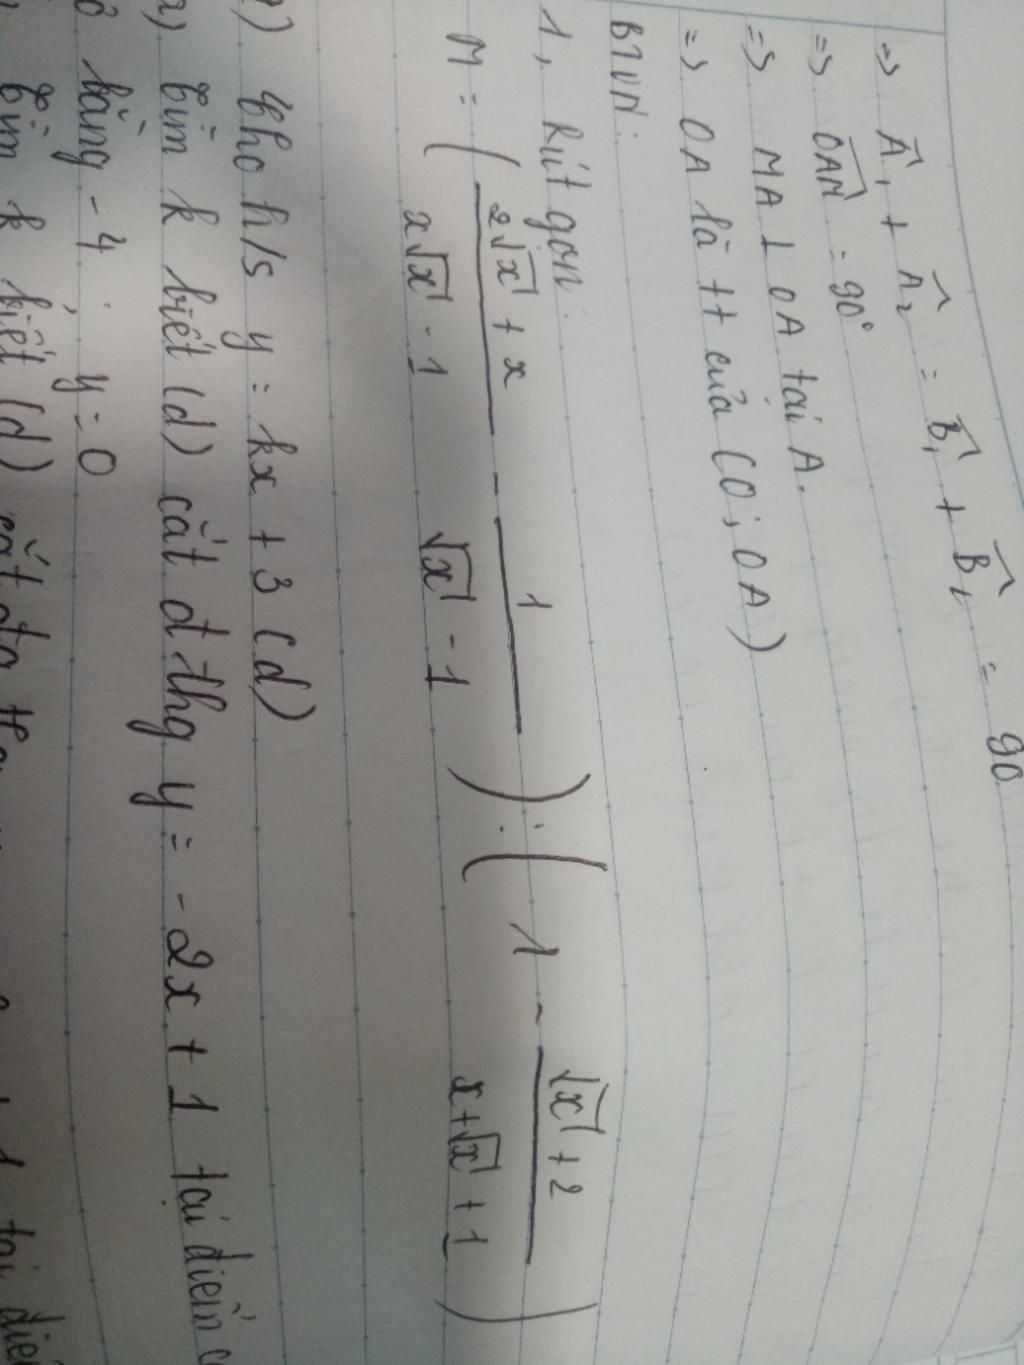 => Â₁ + Â₂ = B̂₁ + B̂₂ = 90
=> OAM = 90°
=> MA ⊥ OA tại A.
=> OA là tt của (O; OA)
BTVN:
1, Rút gọn:
M = ( (2√x + x)/(x√x - 1) - 1/(√x - 1) ) : ( 1 - (√x + 2)/(x + √x + 1) )
2) Cho h/s y = kx + 3 (d)
a) Tìm k biết (d) cắt đ thg y = -2x + 1 tại điểm
bằng -4; y = 0
Tìm k biết (d) cắt 1 tại